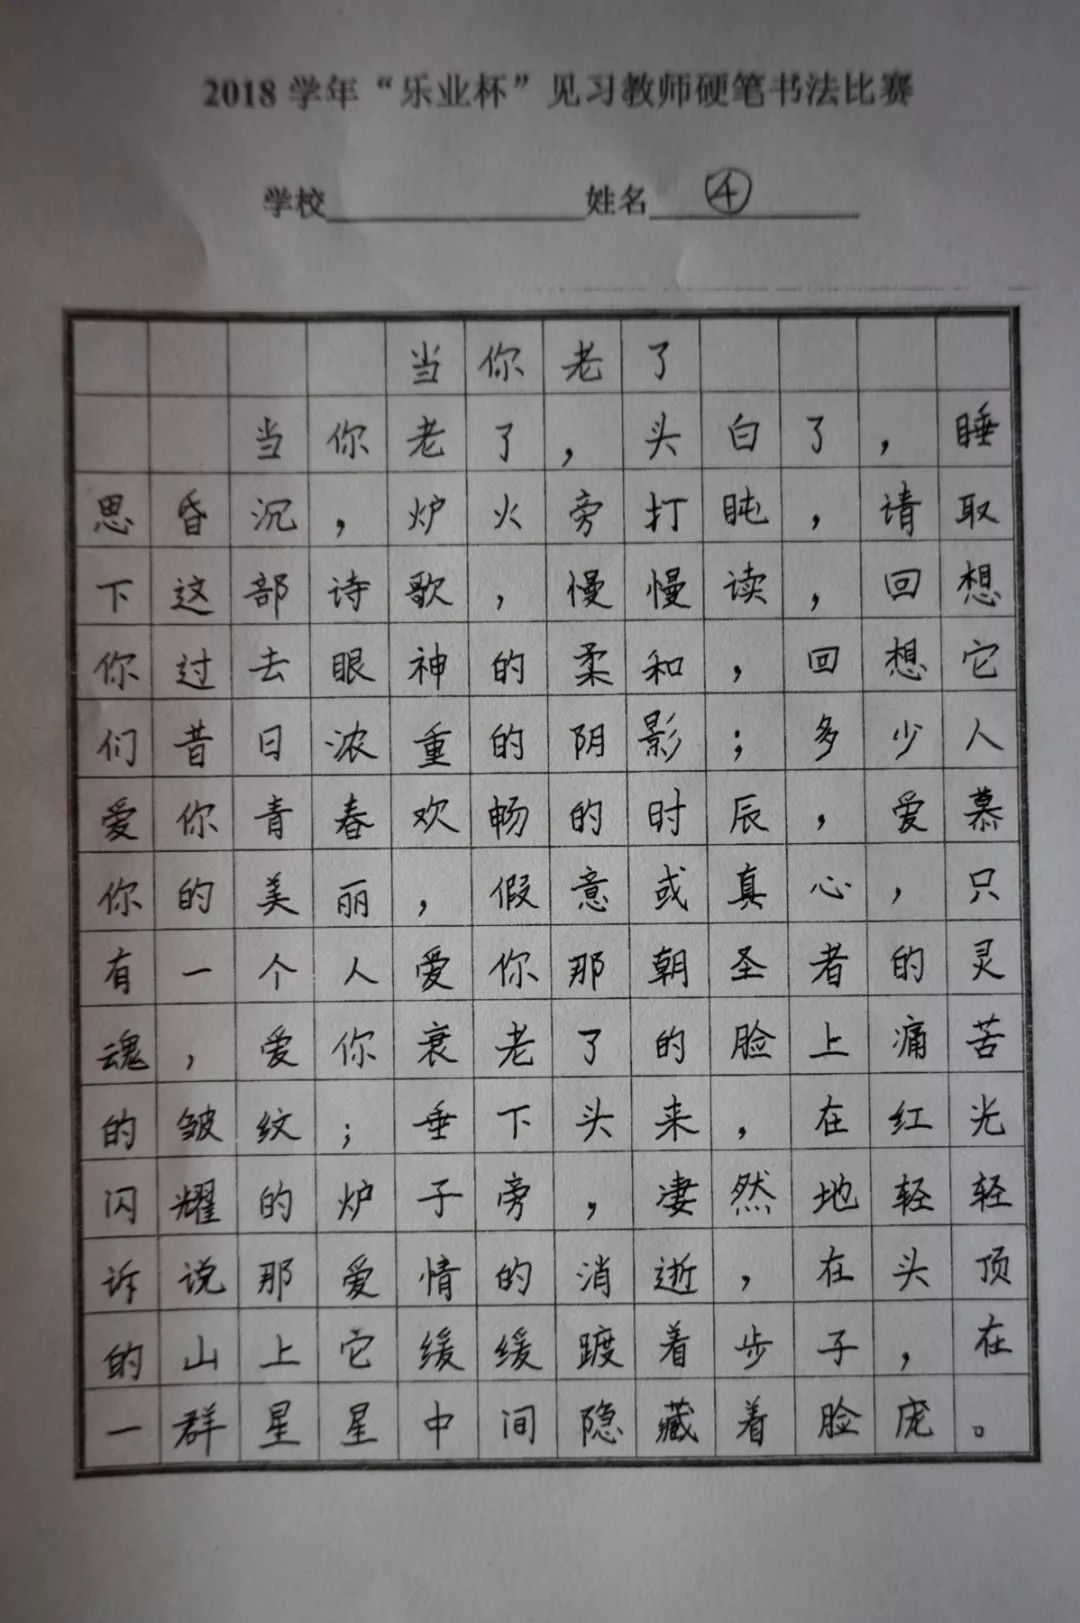 2018 学年“乐业杯”见习教师硬笔书法比赛
学校 姓名 ④
当你老了
当你老了，头白了，睡
思昏沉，炉火旁打盹，请取
下这部诗歌，慢慢读，回想
你过去眼神的柔和，回想它
们昔日浓重的阴影；多少人
爱你青春欢畅的时辰，爱慕
你的美丽，假意或真心，只
有一个人爱你那朝圣者的灵
魂，爱你衰老了的脸上痛苦
的皱纹；垂下头来，在红光
闪耀的炉子旁，凄然地轻轻
诉说那爱情的消逝，在头顶
的山上它缓缓踱着步子，在
一群星星中间隐藏着脸庞。